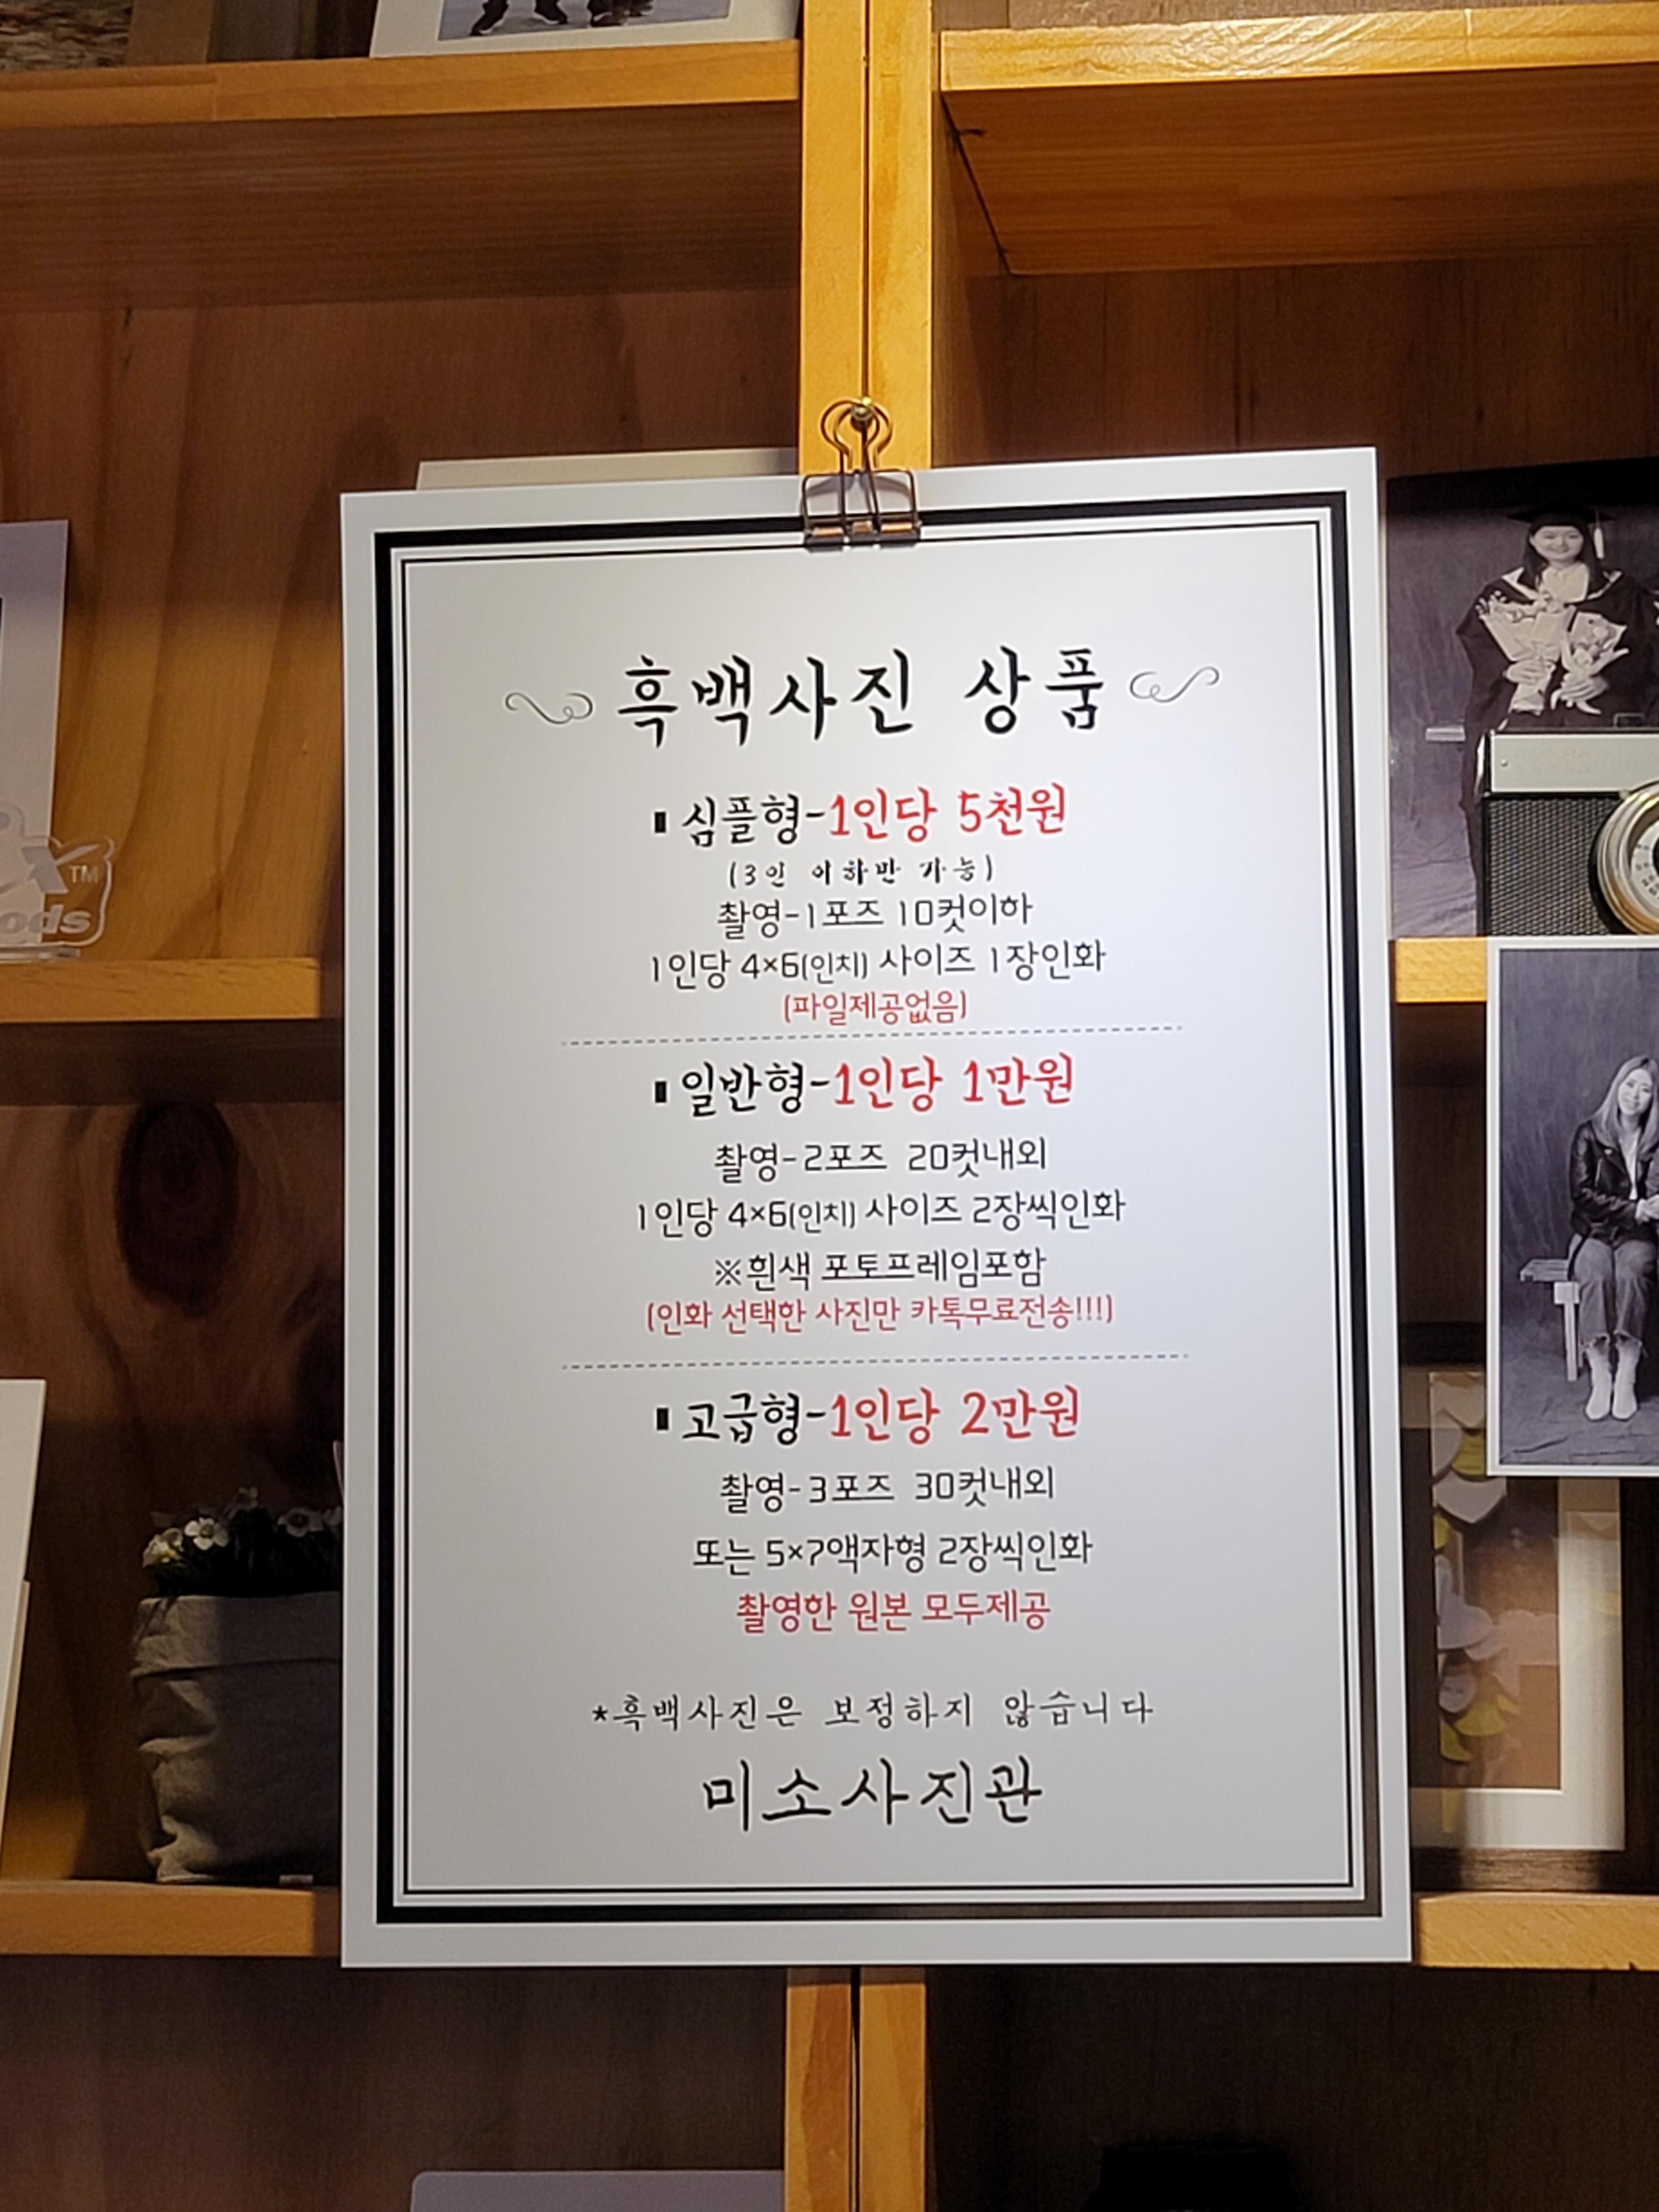 흑백사진 상품
▮심플형-1인당 5천원
(3인 이하만 가능)
촬영-1포즈 10컷이하
1인당 4×6(인치) 사이즈 1장인화
(파일제공없음)
▮일반형-1인당 1만원
촬영-2포즈 20컷내외
1인당 4×6(인치) 사이즈 2장씩인화
※흰색 포토프레임포함
(인화 선택한 사진만 카톡무료전송!!!)
▮고급형-1인당 2만원
촬영-3포즈 30컷내외
또는 5×7액자형 2장씩인화
촬영한 원본 모두제공
*흑백사진은 보정하지 않습니다
미소사진관
TM